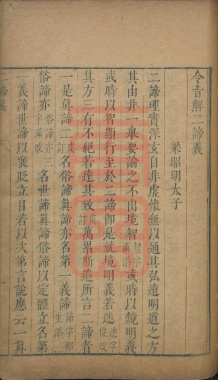 令旨解二諦義
梁昭明太子
二諦理實深玄自非虛懷無以通其弘遠明道之方
其由非一舉要論之不出境智或時以境明義
或時以智顯行至於二諦卽是就境明義若迷
其方三有不絕若達其致萬累斯遣所言二諦者
一是眞諦二名俗諦眞諦亦名第一義諦
俗諦亦名世諦眞諦俗諦以定體立名第
一義諦世諦以襃貶立目若以次第言說應云一眞